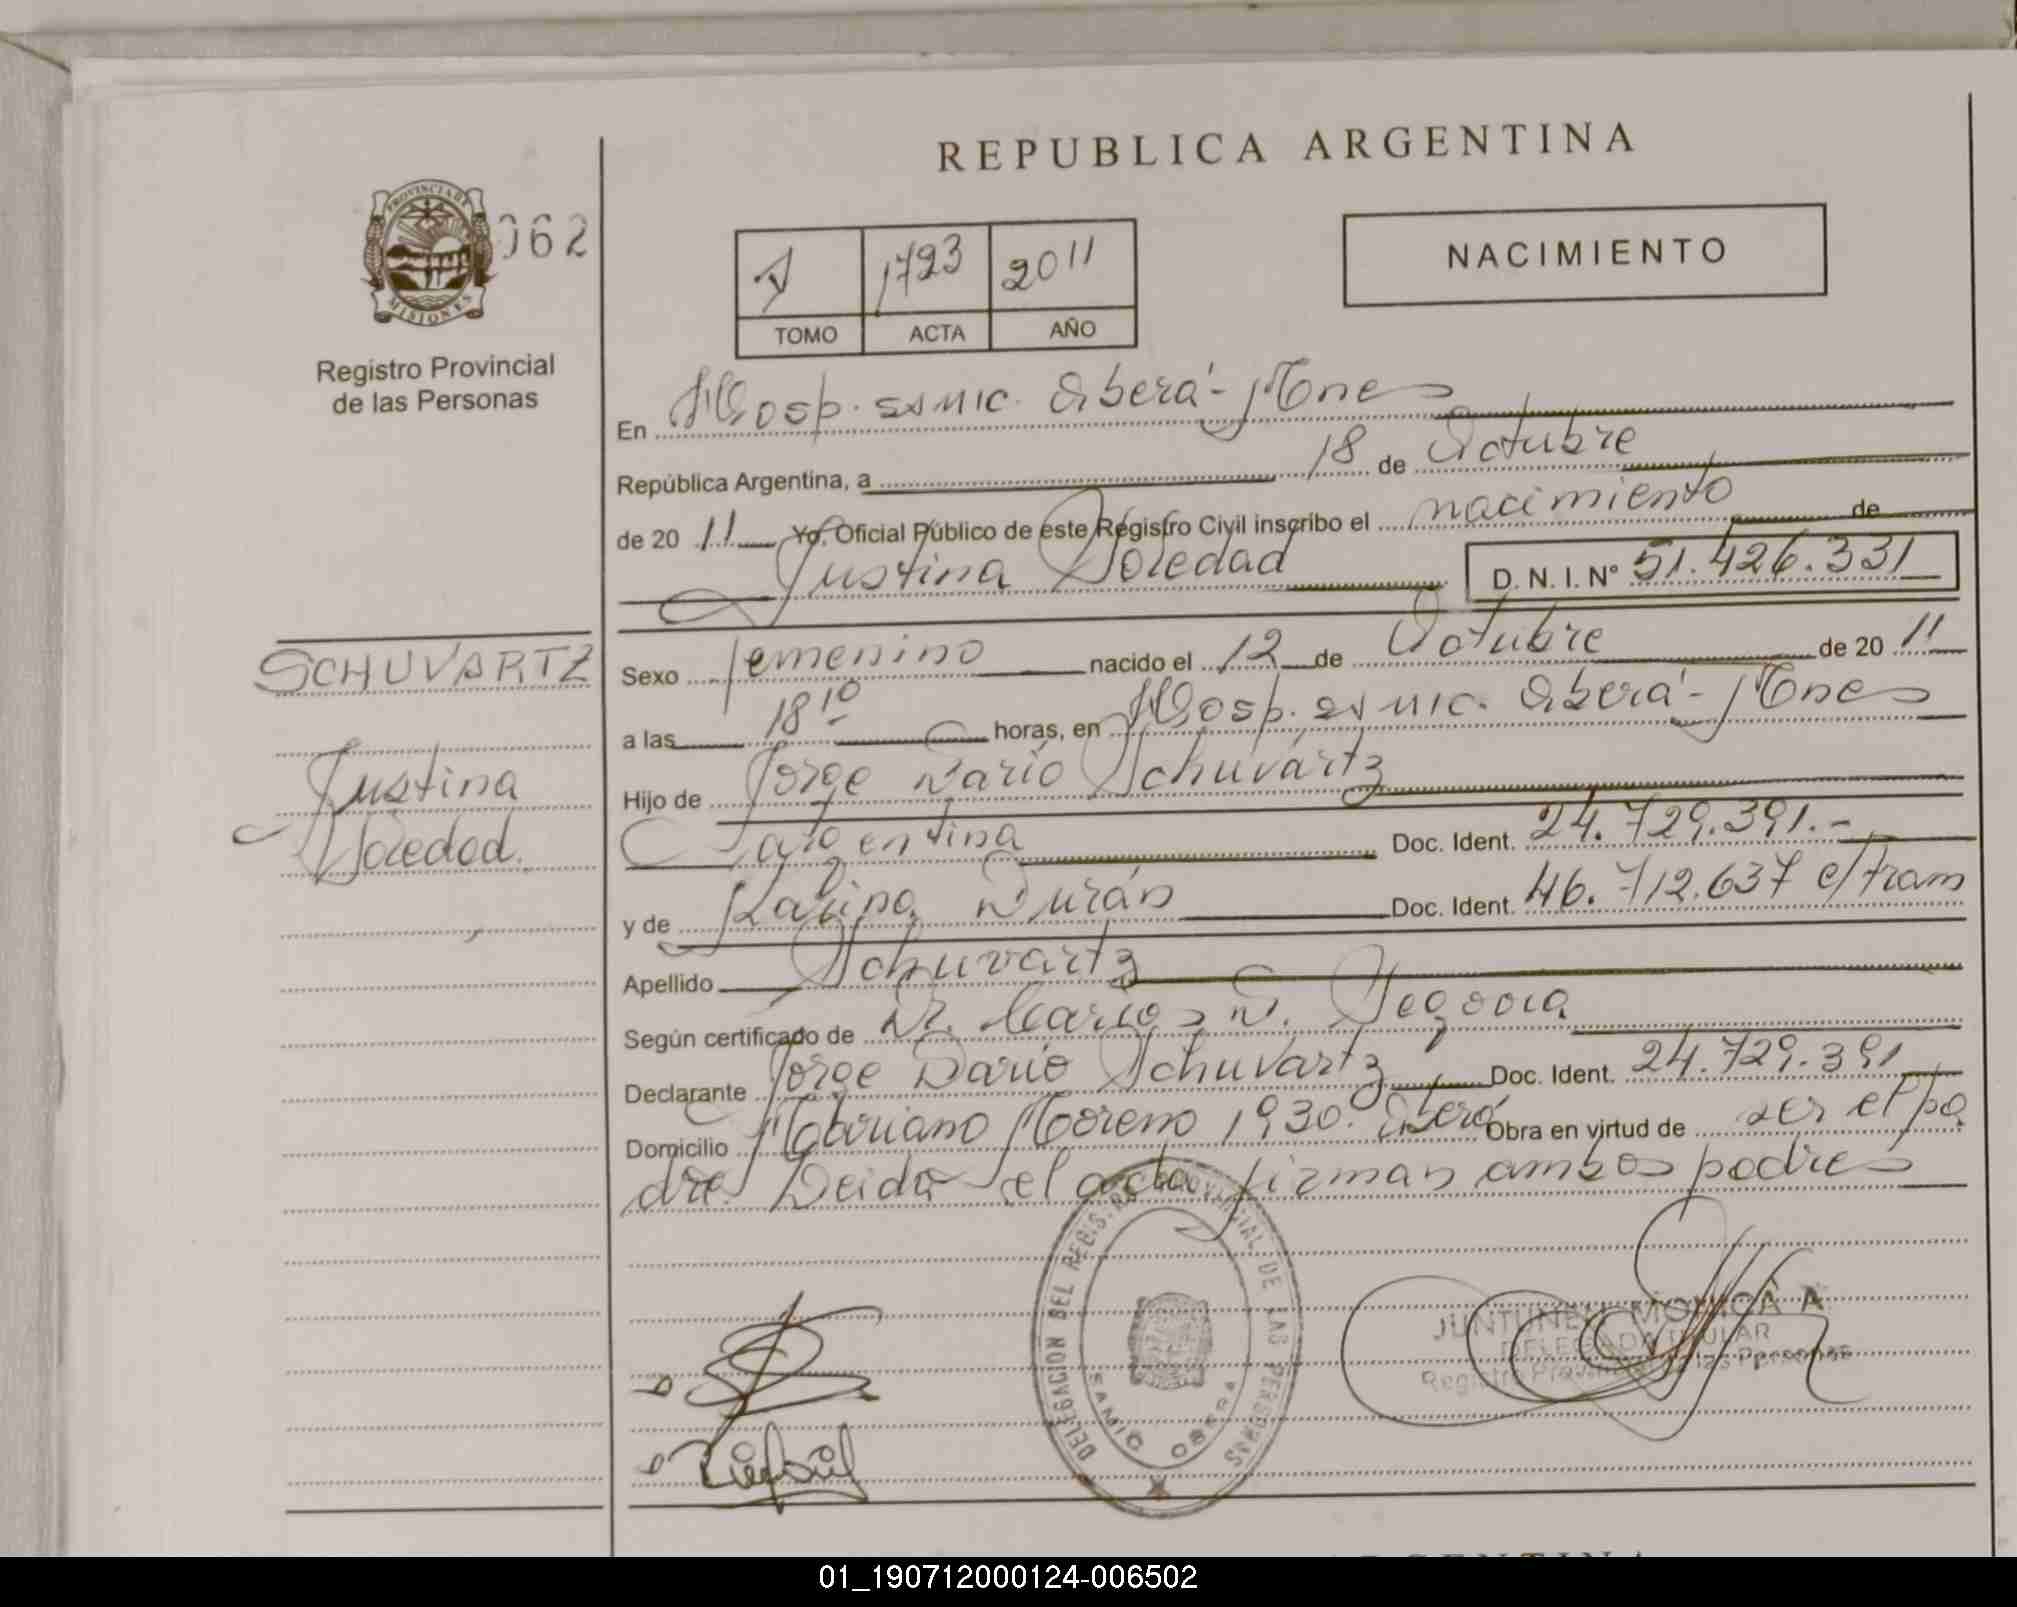 REPUBLICA ARGENTINA
PROVINCIA DE
MISIONES
062
Registro Provincial
de las Personas
1723 2011
TOMO ACTA AÑO
NACIMIENTO
En Hosp. Samic. Oberá - Mnes
República Argentina, a 18 de Octubre
de 20 11 Yo, Oficial Público de este Registro Civil inscribo el nacimiento de
Justina Soledad D. N. I. Nº 51.426.331
SCHUVARTZ
Justina
Soledad.
Sexo femenino nacido el 12 de Octubre de 20 11
a las 18 10 horas, en Hosp. Samic. Oberá - Mnes
Hijo de Jorge Darío Schuvartz
Argentina Doc. Ident. 24.729.391.-
y de Karina Durán Doc. Ident. 46.712.637 e/tram
Apellido Schuvartz
Según certificado de Dr. Carlos D. Segovia
Declarante Jorge Darío Schuvartz Doc. Ident. 24.729.391
Domicilio Mariano Moreno 1930. Oberá Obra en virtud de ser el pa
dre. Leída el acta, firman ambos padres
DELEGACION DEL REGISTRO PROVINCIAL DE LAS PERSONAS
SAMIC OBERA
MONICA A
DELEGADA TITULAR
Registro Provincial de las Personas
01_190712000124-006502